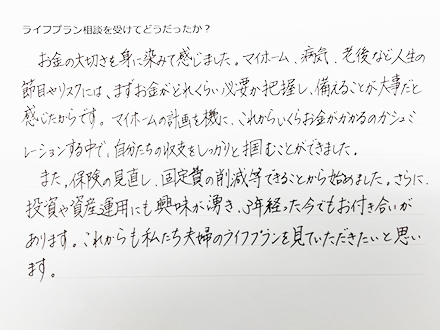 ライフプラン相談を受けてどうだったか？
お金の大切さを身に染みて感じました。マイホーム、病気、老後など人生の
節目やリスクには、まずお金がどれくらい必要か把握し、備えることが大事だと
感じたからです。マイホームの計画を機に、これからいくらお金がかかるのかシュミ
レーションする中で、自分たちの収支をしっかりと掴むことができました。
また、保険の見直し、固定費の削減等できることから始めました。さらに、
投資や資産運用にも興味が湧き、3年経った今でもお付き合いが
あります。これからも私たち夫婦のライフプランを見ていただきたいと思い
ます。